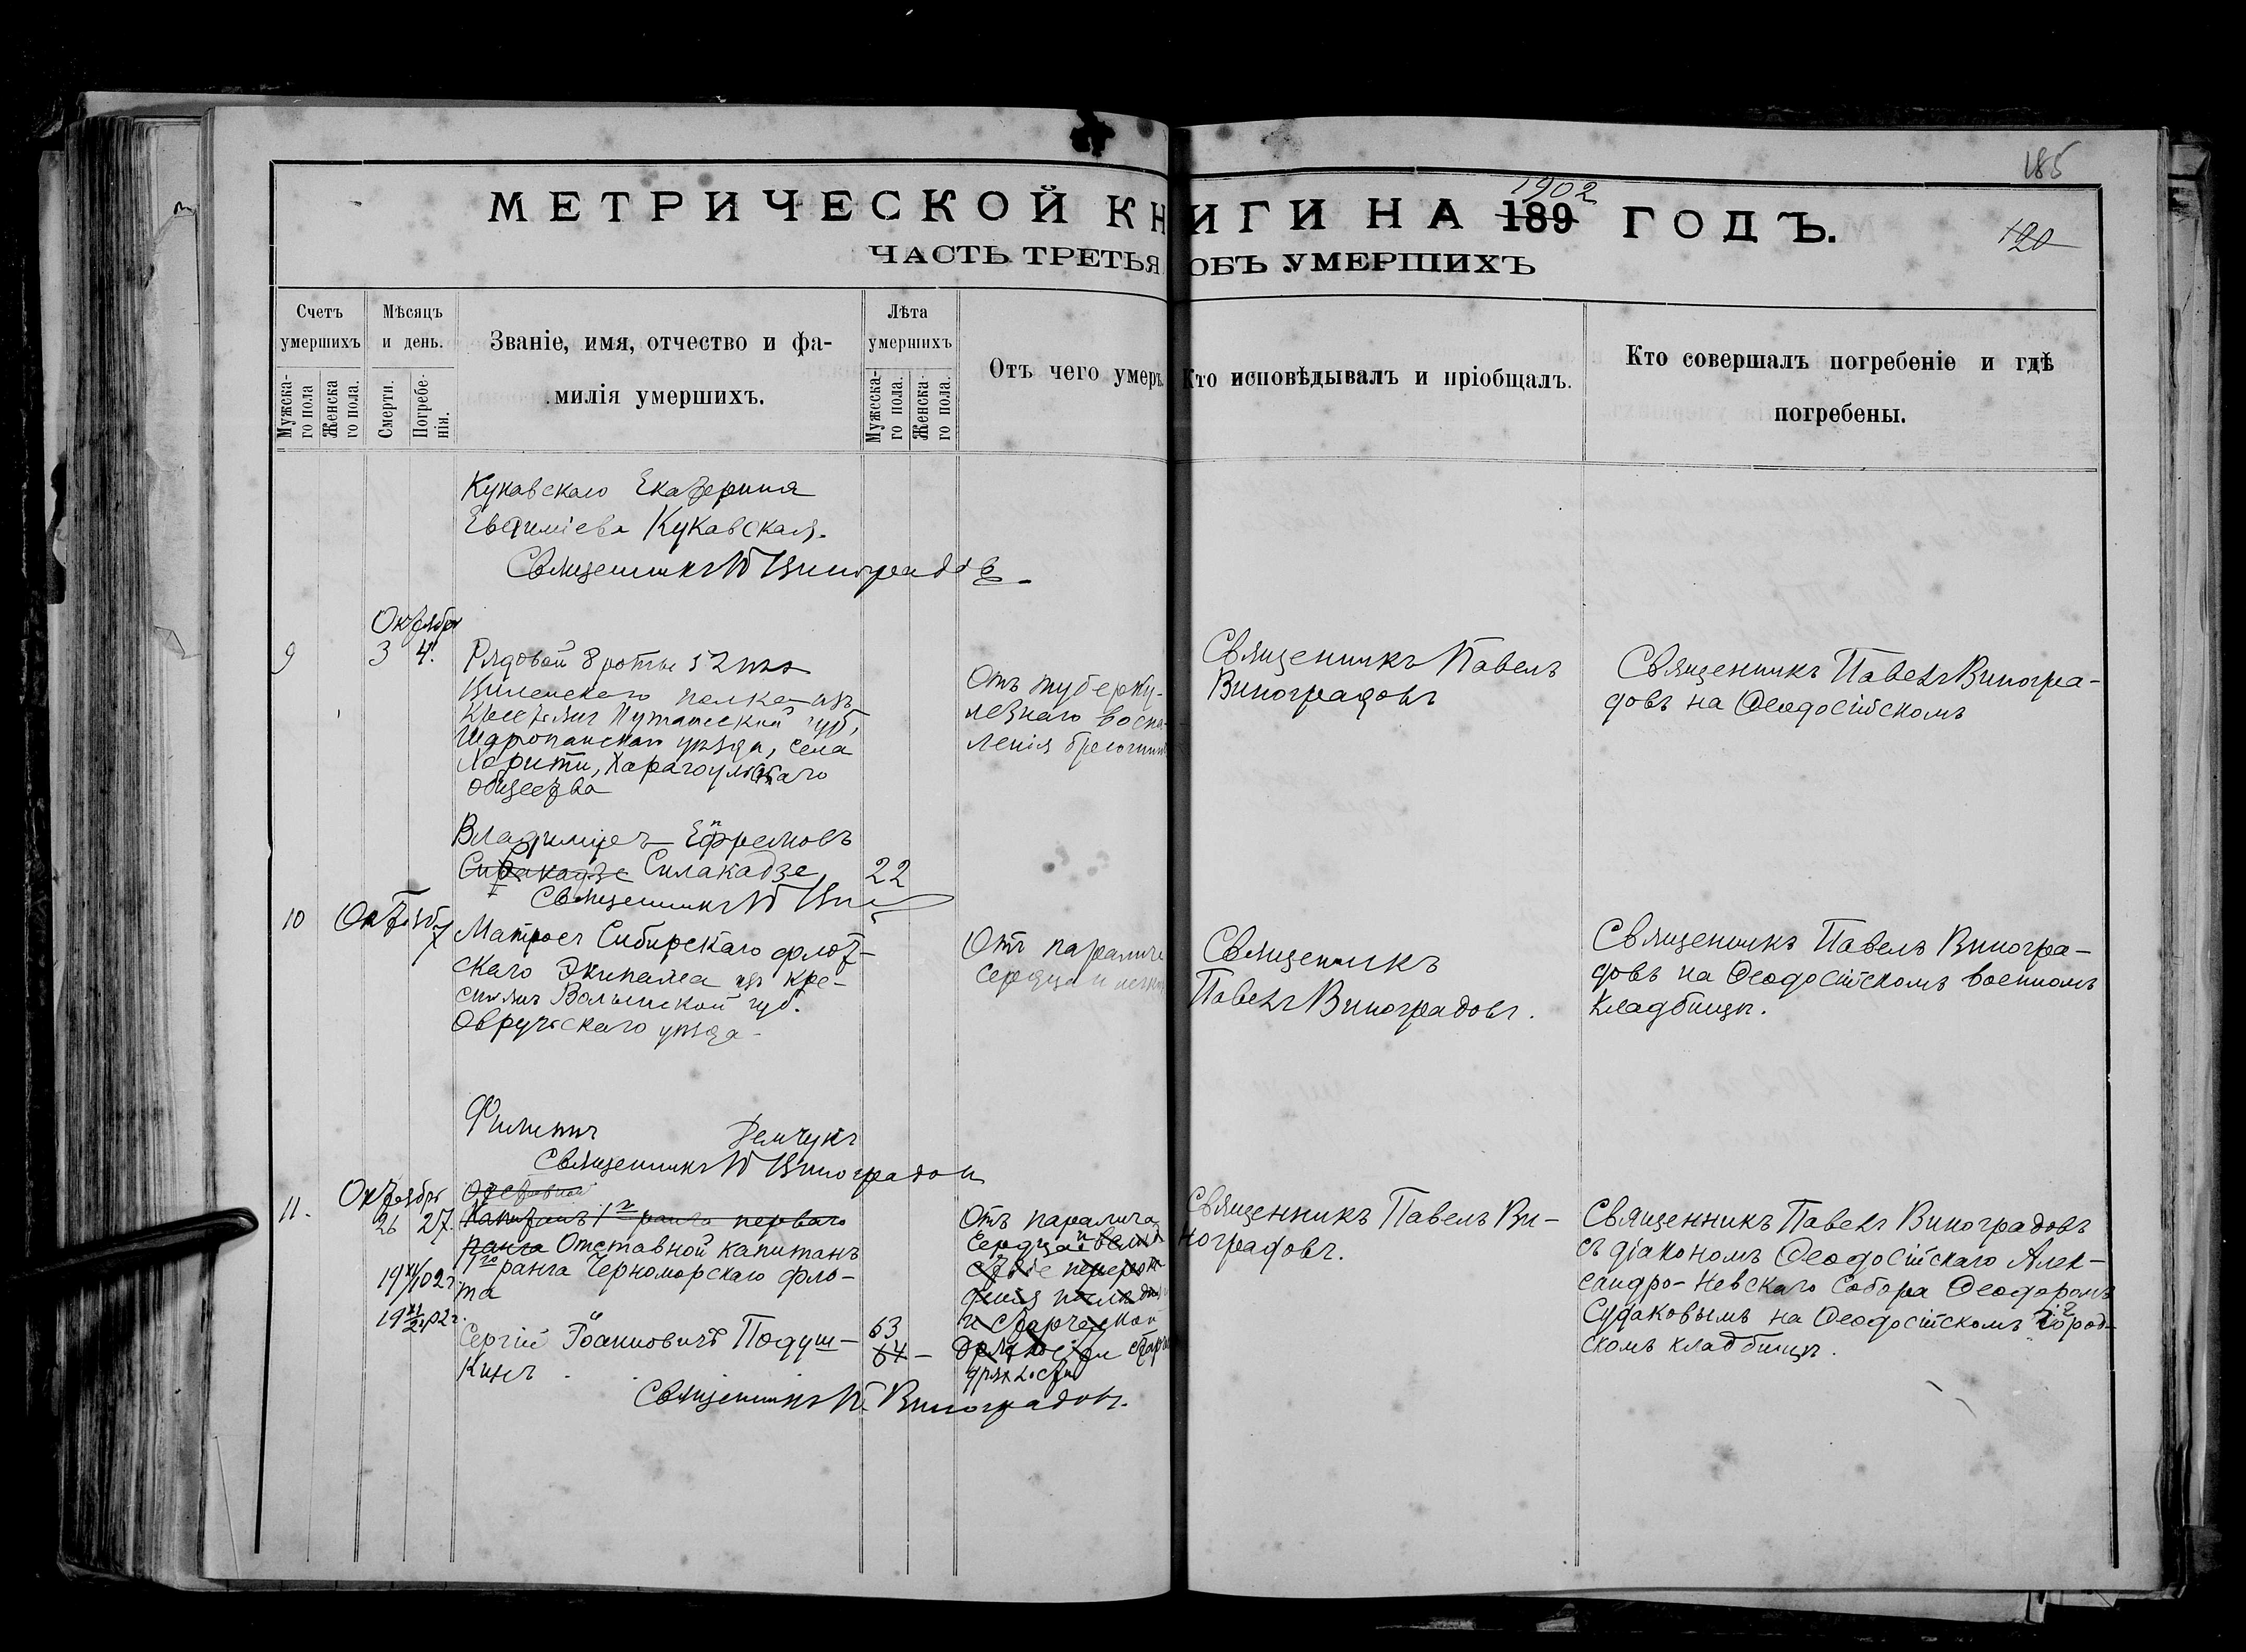 185
МЕТРИЧЕСКОЙ КНИГИ НА 189 1902 ГОДЪ.
120
ЧАСТЬ ТРЕТЬЯ ОБЪ УМЕРШИХЪ
Счетъ умершихъ
Мужска-го пола
Женска го пола.
Мѣсяцъ и день.
Смерти.
Погребе-нія.
Званіе, имя, отчество и фа-
милія умершихъ.
Лѣта умершихъ
Мужеска-го пола.
Женска-го пола.
Отъ чего умеръ.
Кто исповѣдывалъ и пріобщалъ.
Кто совершалъ погребеніе и гдѣ
погребены.
Кукавскаго Екатерина
Евфиміева Кукавская.
Священникъ П Виноградов
Октября
9
3 4.
Рядовой 8 роты 52 пѣх
Виленскаго полка из
крестьянъ Кутаисской губ,
Шаропанскаго уѣзда, села
Харагоульскаго
общества
Владимиръ Ефремовъ
Силакадзе
22
Священникъ П Ви
Отъ туберку-
лезнаго воспа-
ленія брюшины
Священникъ Павелъ
Виноградовъ
Священникъ Павелъ Виногра-
довъ на Ѳеодосійскомъ
10
Октябр
7
Матросъ Сибирскаго флот-
скаго Экипажа изъ кре-
стьянъ Волынской губ.
Овручскаго уѣзда
Филиппъ Демчукъ
Священникъ П Виноградов
Отъ паралича
сердца и легк
Священникъ
Павелъ Виноградовъ.
Священникъ Павелъ Виногра-
довъ на Ѳеодосійскомъ военномъ
кладбищѣ.
11.
Октября
26 27.
Отставной
Капитанъ 1го ранга перваго
ранга Отставной капитанъ
1го ранга Черноморскаго фло-
та
19 XI/1 02 г.
19 XI/24 02 г.
Сергій Іоанновичъ Подуш-
кинъ
63
64
Священникъ П. Виноградовъ.
Отъ паралича
Сердца и
и старческой
дряхлости
дряхлости
Священникъ Павелъ Ви-
ноградовъ.
Священникъ Павелъ Виноградовъ
съ діакономъ Ѳеодосійскаго Алек-
сандро-Невскаго Собора Ѳеодоромъ
Судаковымъ на Ѳеодосійскомъ город-
скомъ кладбищѣ.